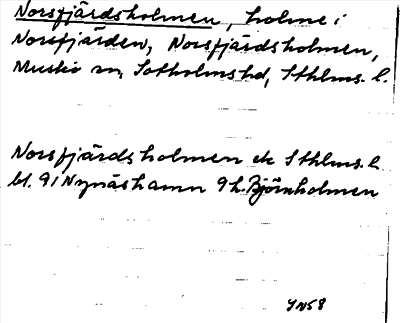 Norsfjärdsholmen, holme i
Norsfjärden, Norsfjärdsholmen,
Muskö sn, Sotholms hd, Sthlms. l.
Norsfjärdsholmen ek Sthlms. l.
bl. 91 Nynäshamn 9 h. Björnholmen